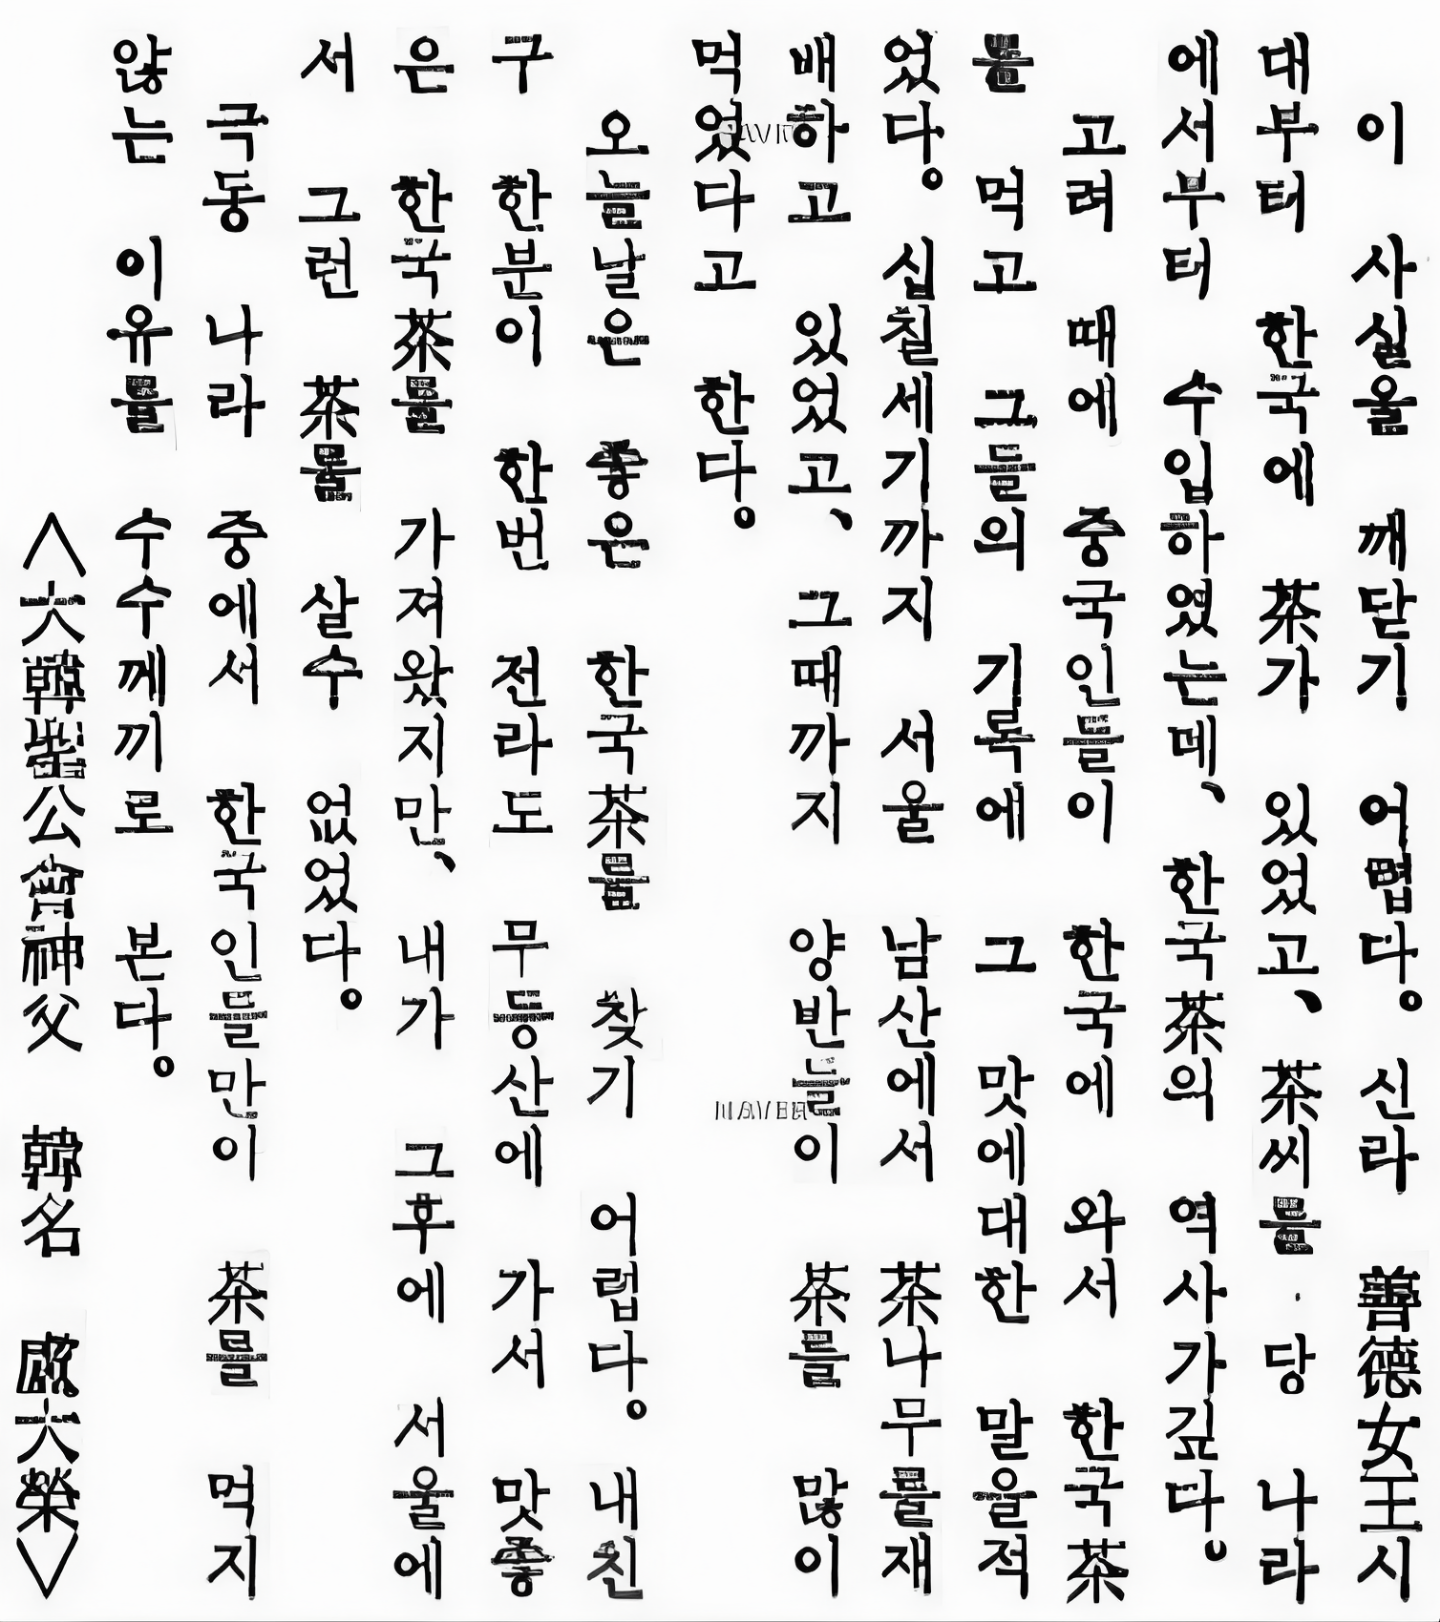 이 사실을 깨닫기 어렵다. 신라 善德女王시
대부터 한국에 茶가 있었고、 茶씨를 · 당 나라
에서부터 수입하였는데、 한국茶의 역사가깊다.
고려 때에 중국인들이 한국에 와서 한국茶
를 먹고 그들의 기록에 그 맛에대한 말을적
었다. 십칠세기까지 서울 남산에서 茶나무를재
배하고 있었고、 그때까지 양반들이 茶를 많이
먹었다고 한다.
오늘날은 좋은 한국茶를 찾기 어렵다. 내친
구 한분이 한번 전라도 무등산에 가서 맛좋
은 한국茶를 가져왔지만、 내가 그후에 서울에
서 그런 茶를 살수 없었다.
극동 나라 중에서 한국인들만이 茶를 먹지
않는 이유를 수수께끼로 본다.
〈大韓聖公會神父 韓名 大榮〉
NAVER